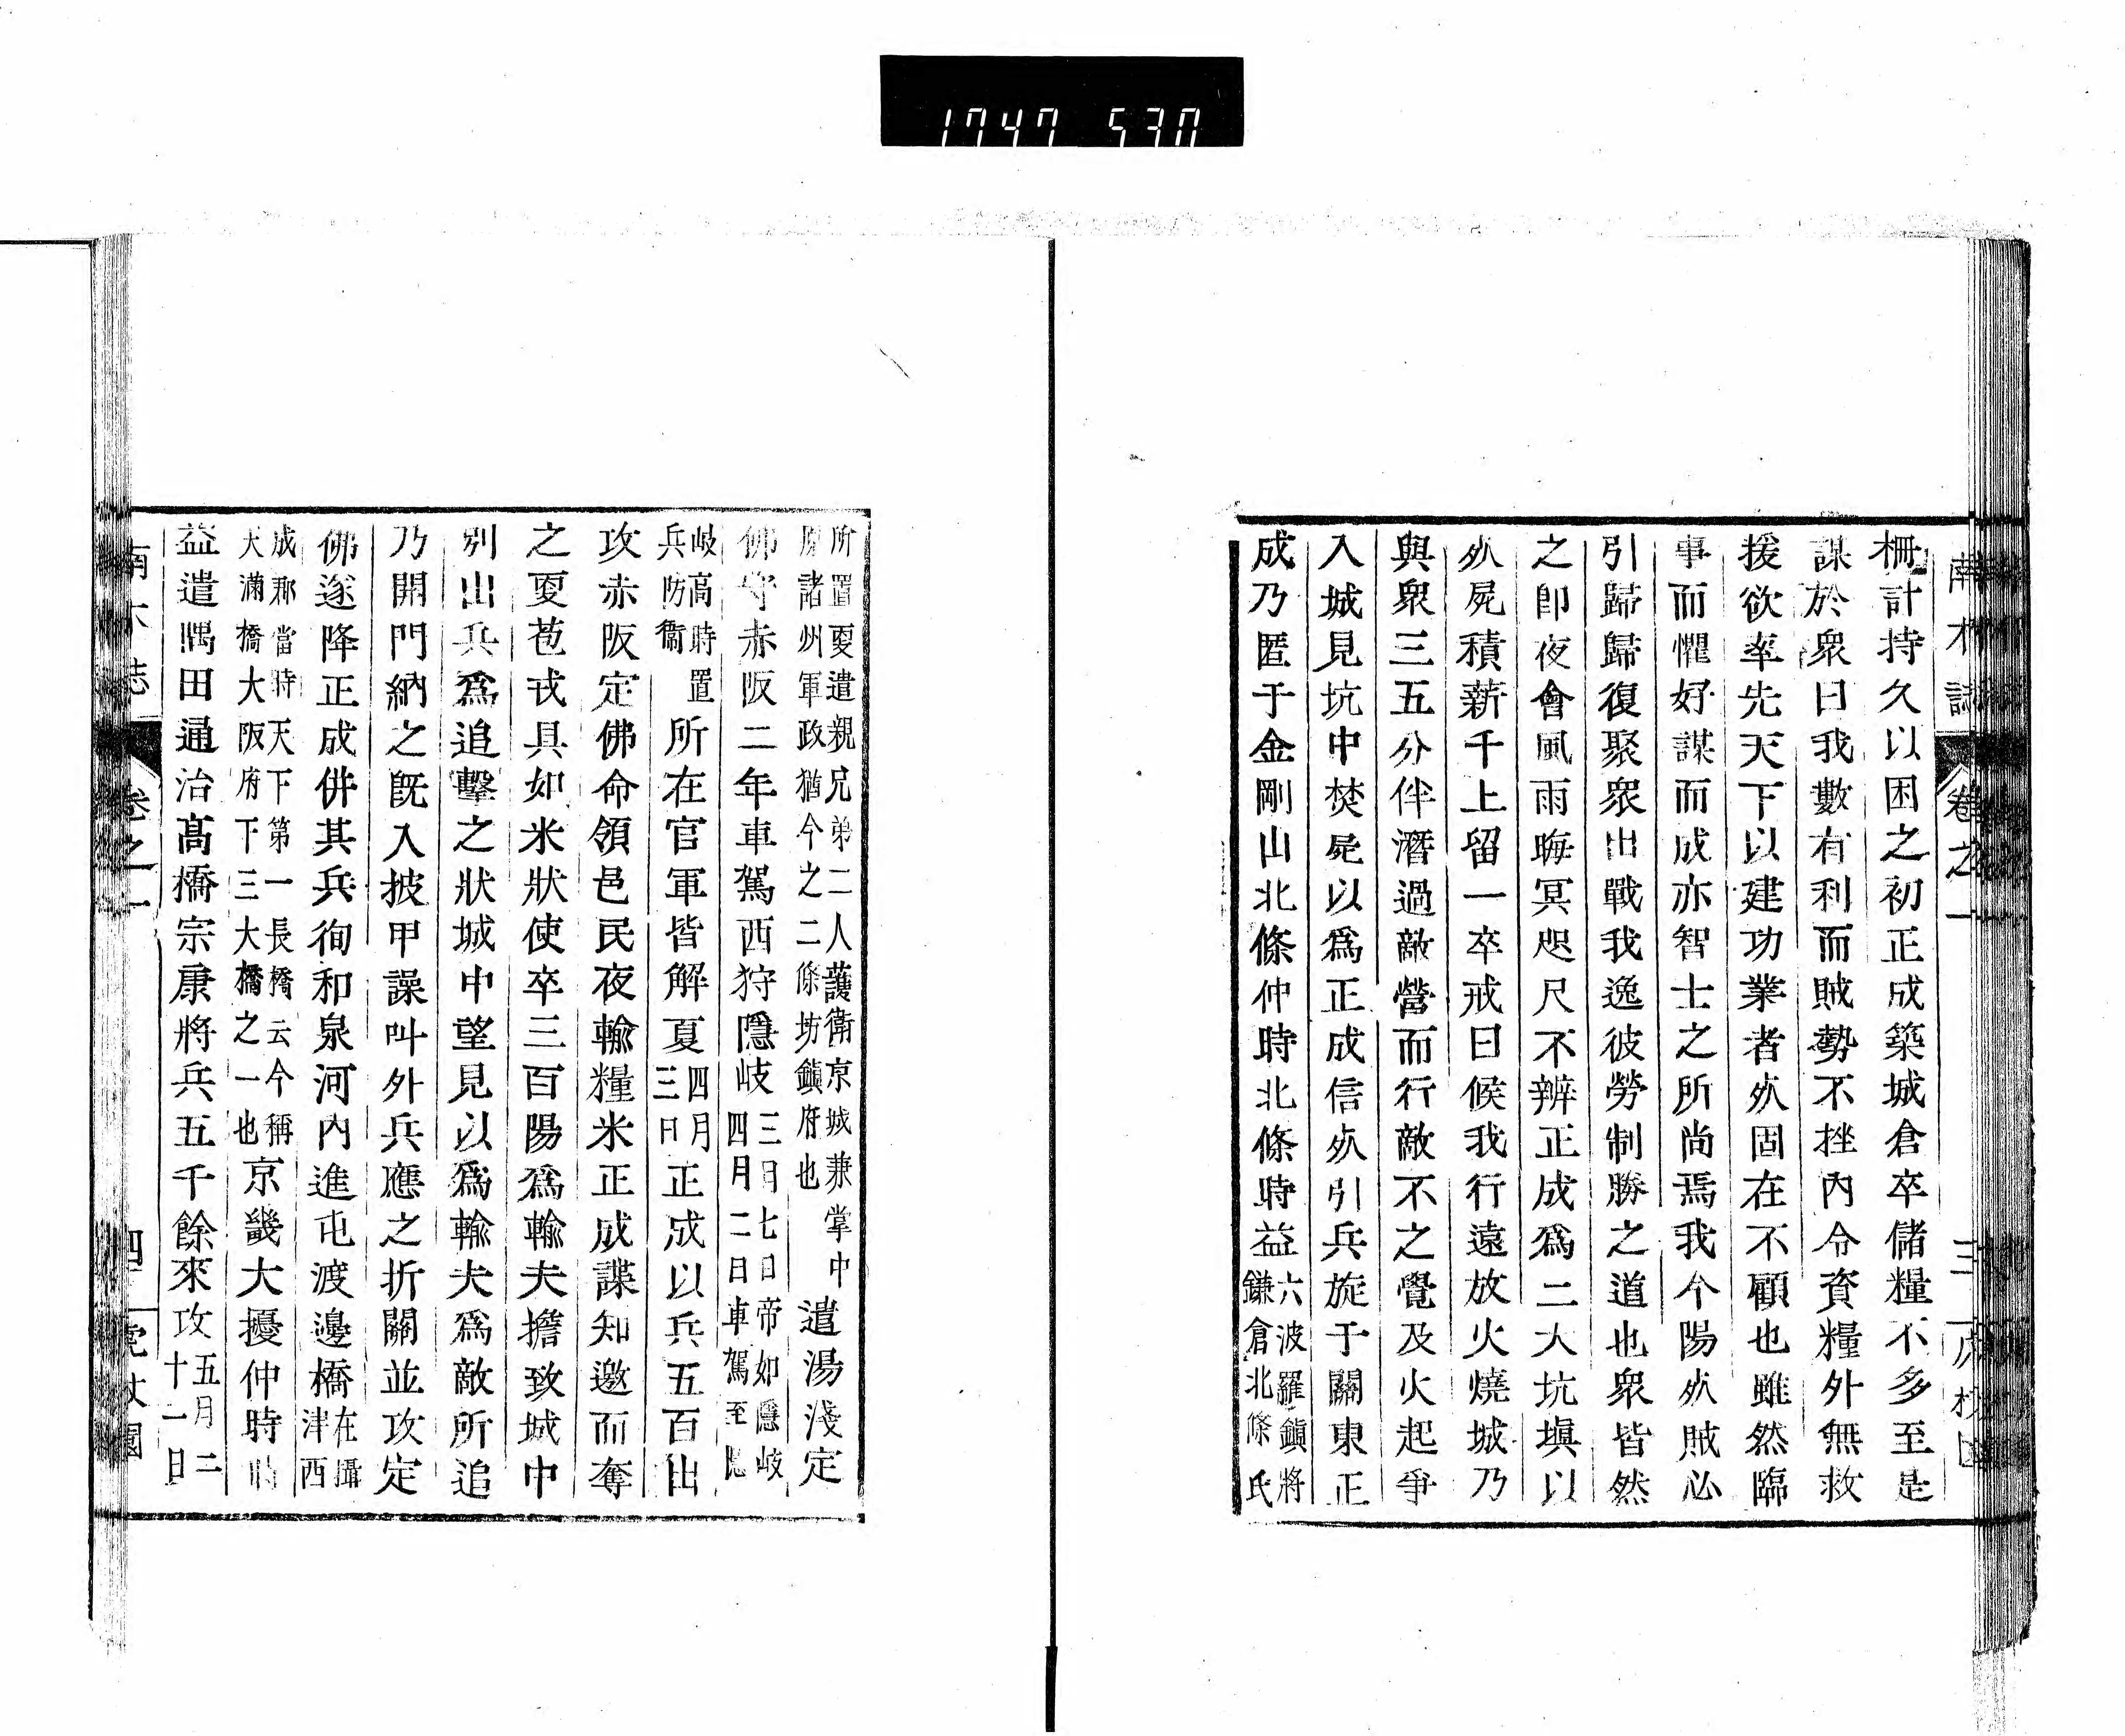 1747 530
南木誌 卷之一 三
柵計持久以困之初正成築城倉卒儲糧不多至是
謀於衆曰我數有利而賊勢不挫內令資糧外無救
援欲率先天下以建功業者㱕固在不顧也雖然臨
事而懼好謀而成亦智士之所尚焉我今陽㱕賊必
引歸歸復聚衆出戰我逸彼勞制勝之道也衆皆然
之卽夜會風雨晦冥咫尺不辨正成爲二大坑塡以
㱕屍積薪千上留一卒戒曰候我行遠放火燒城乃
與衆三五分伴潛過敵營而行敵不之覺及火起爭
入城見坑中焚屍以爲正成信㱕引兵旋于關東正
成乃匿于金剛山北條仲時北條時益六波羅鎭將
鎌倉北條氏
所置更遣親兄弟二人護衛京城兼掌中
原諸州軍政猶今之二條坊鎭府也遣湯淺定
佛守赤阪二年車駕西狩隱岐三日七日帝如隱岐
四月二日車駕至隱
岐高時置
兵防衞所在官軍皆解夏四月
三日正成以兵五百出
攻赤阪定佛命領邑民夜輸糧米正成諜知邀而奪
之更苞戎具如米狀使卒三百陽爲輸夫擔致城中
別出兵爲追擊之狀城中望見以爲輸夫爲敵所追
乃開門納之旣入披甲譟叫外兵應之折關並攻定
佛遂降正成併其兵徇和泉河內進屯渡邊橋在攝
津西
成郡當時天下第一長橋云今稱
天滿橋大阪府下三大橋之一也京畿大擾仲時時
益遣隅田通治高橋宗康將兵五千餘來攻五月二
十一日
南木誌 卷之一 四